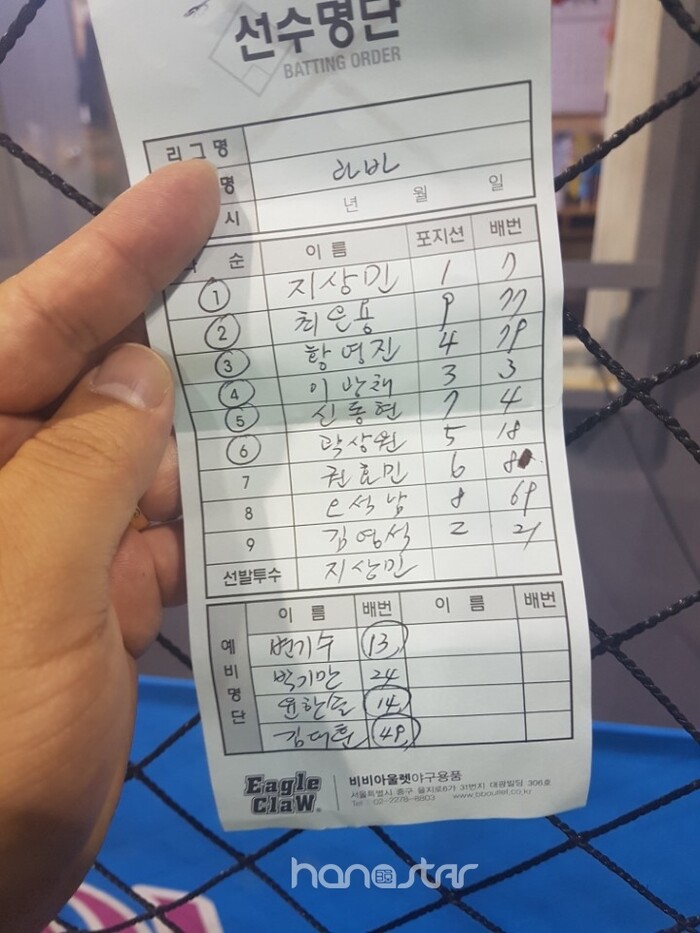 선수명단
BATTING ORDER
리그명
명 라바
시 년 월 일
순 이름 포지션 배번
1 지상민 1 7
2 최은용 9 77
3 황영진 4 79
4 3 3
5 신동현 7 4
6 곽상원 5 18
7 권효민 6 8
8 오석남 8 69
9 김영석 2 21
선발투수 지상민
예비명단 이름 배번 이름 배번
변기수 13
박기만 24
윤한솔 14
김대훈 49
Eagle Claw
비비아울렛야구용품
서울특별시 중구 을지로6가 31번지 대광빌딩 306호
Tel : 02-2278-8803 www.bboutlet.co.kr
hanestar